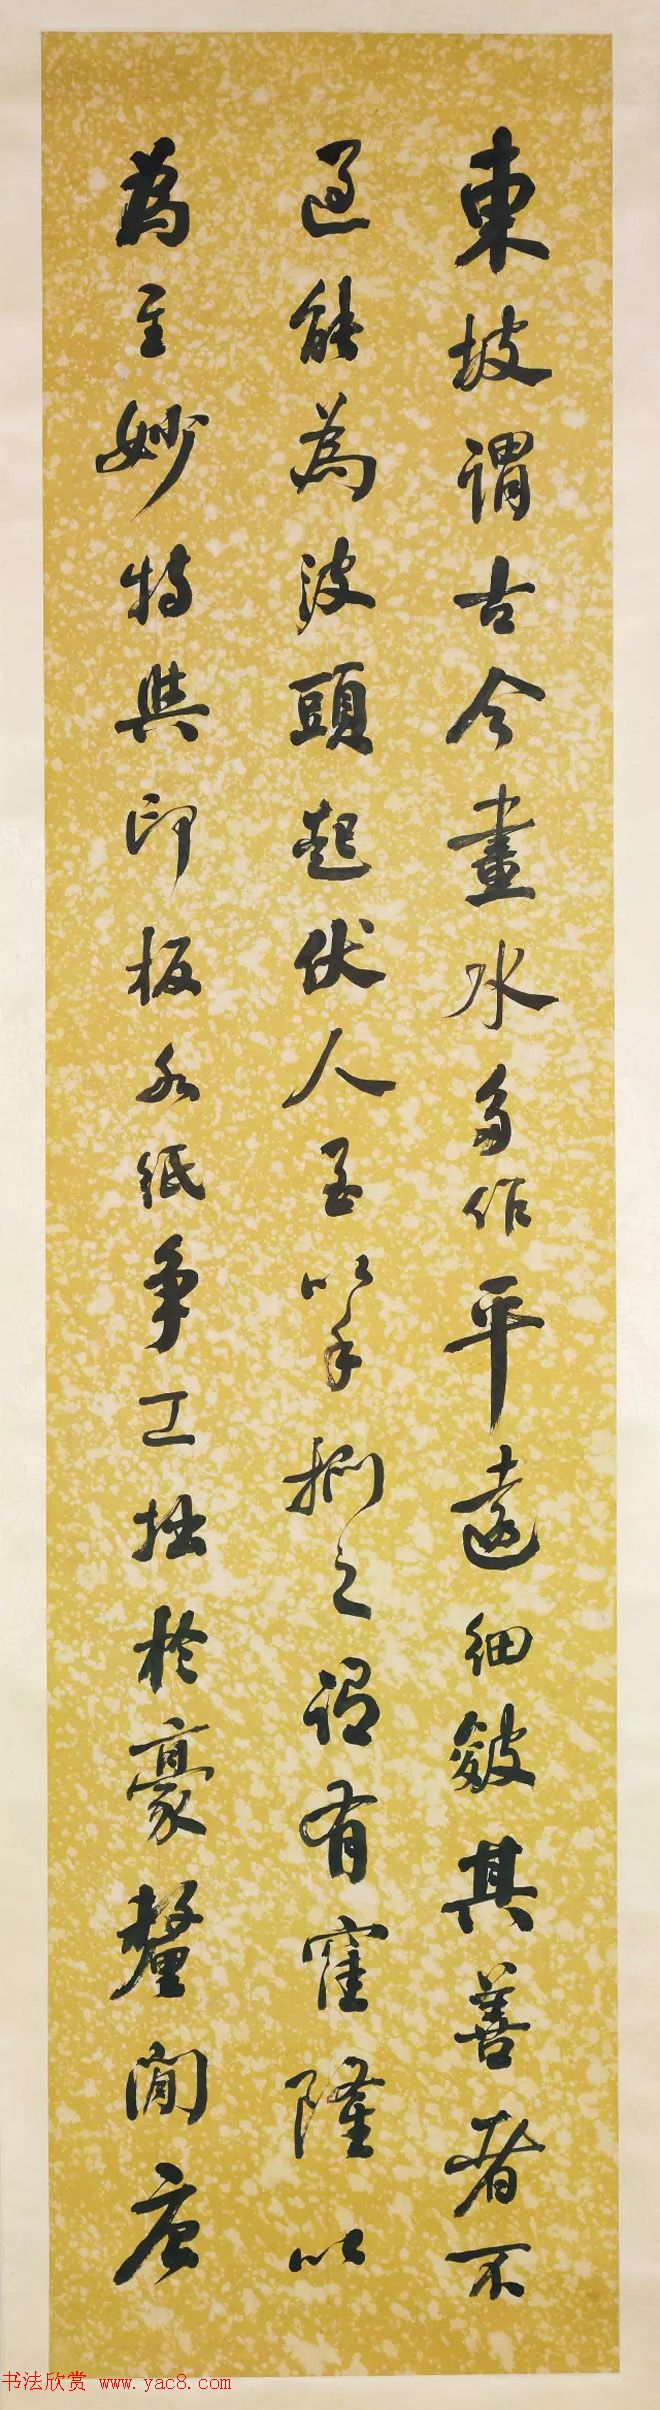 東坡謂古今畫水多作平遠細皴其善者不
過能為波頭起伏人至以手捫之謂有窪隆以
為至妙特與印板水紙爭工拙於豪釐間唐
书法欣赏 www.yac8.com